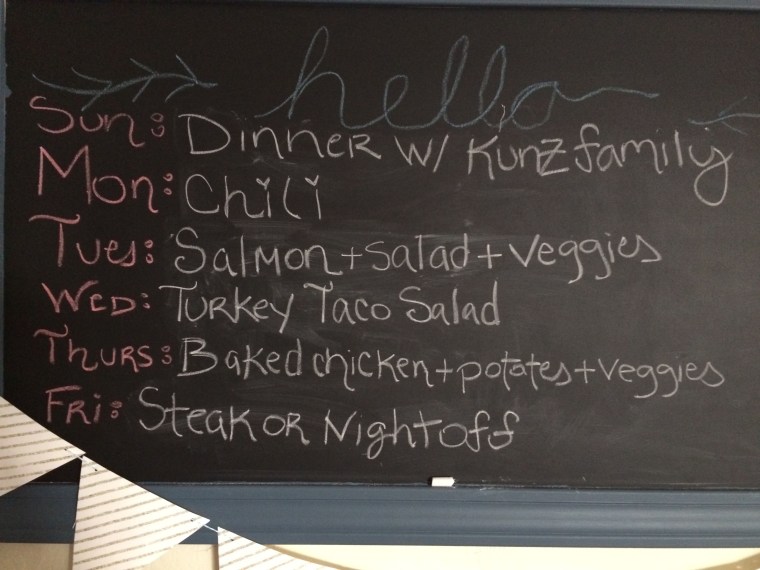 hello
Sun: Dinner w/ Kunz family
Mon: Chili
Tues: Salmon + salad + veggies
Wed: Turkey Taco Salad
Thurs: Baked chicken + potates + veggies
Fri: Steak or Night off